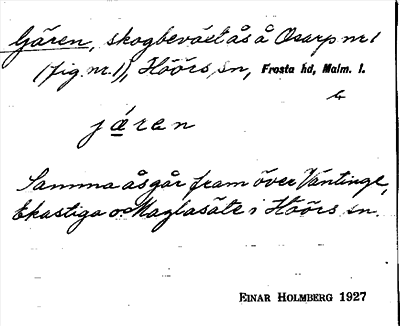 Gären, skogbeväxt ås å Osarp nr 1
(fig. nr. 1), Höörs sn, Frosta hd, Malm. l.
jären
Samma ås går fram över Väntinge,
Ekastiga o Maglasäte i Höörs sn.
EINAR HOLMBERG 1927